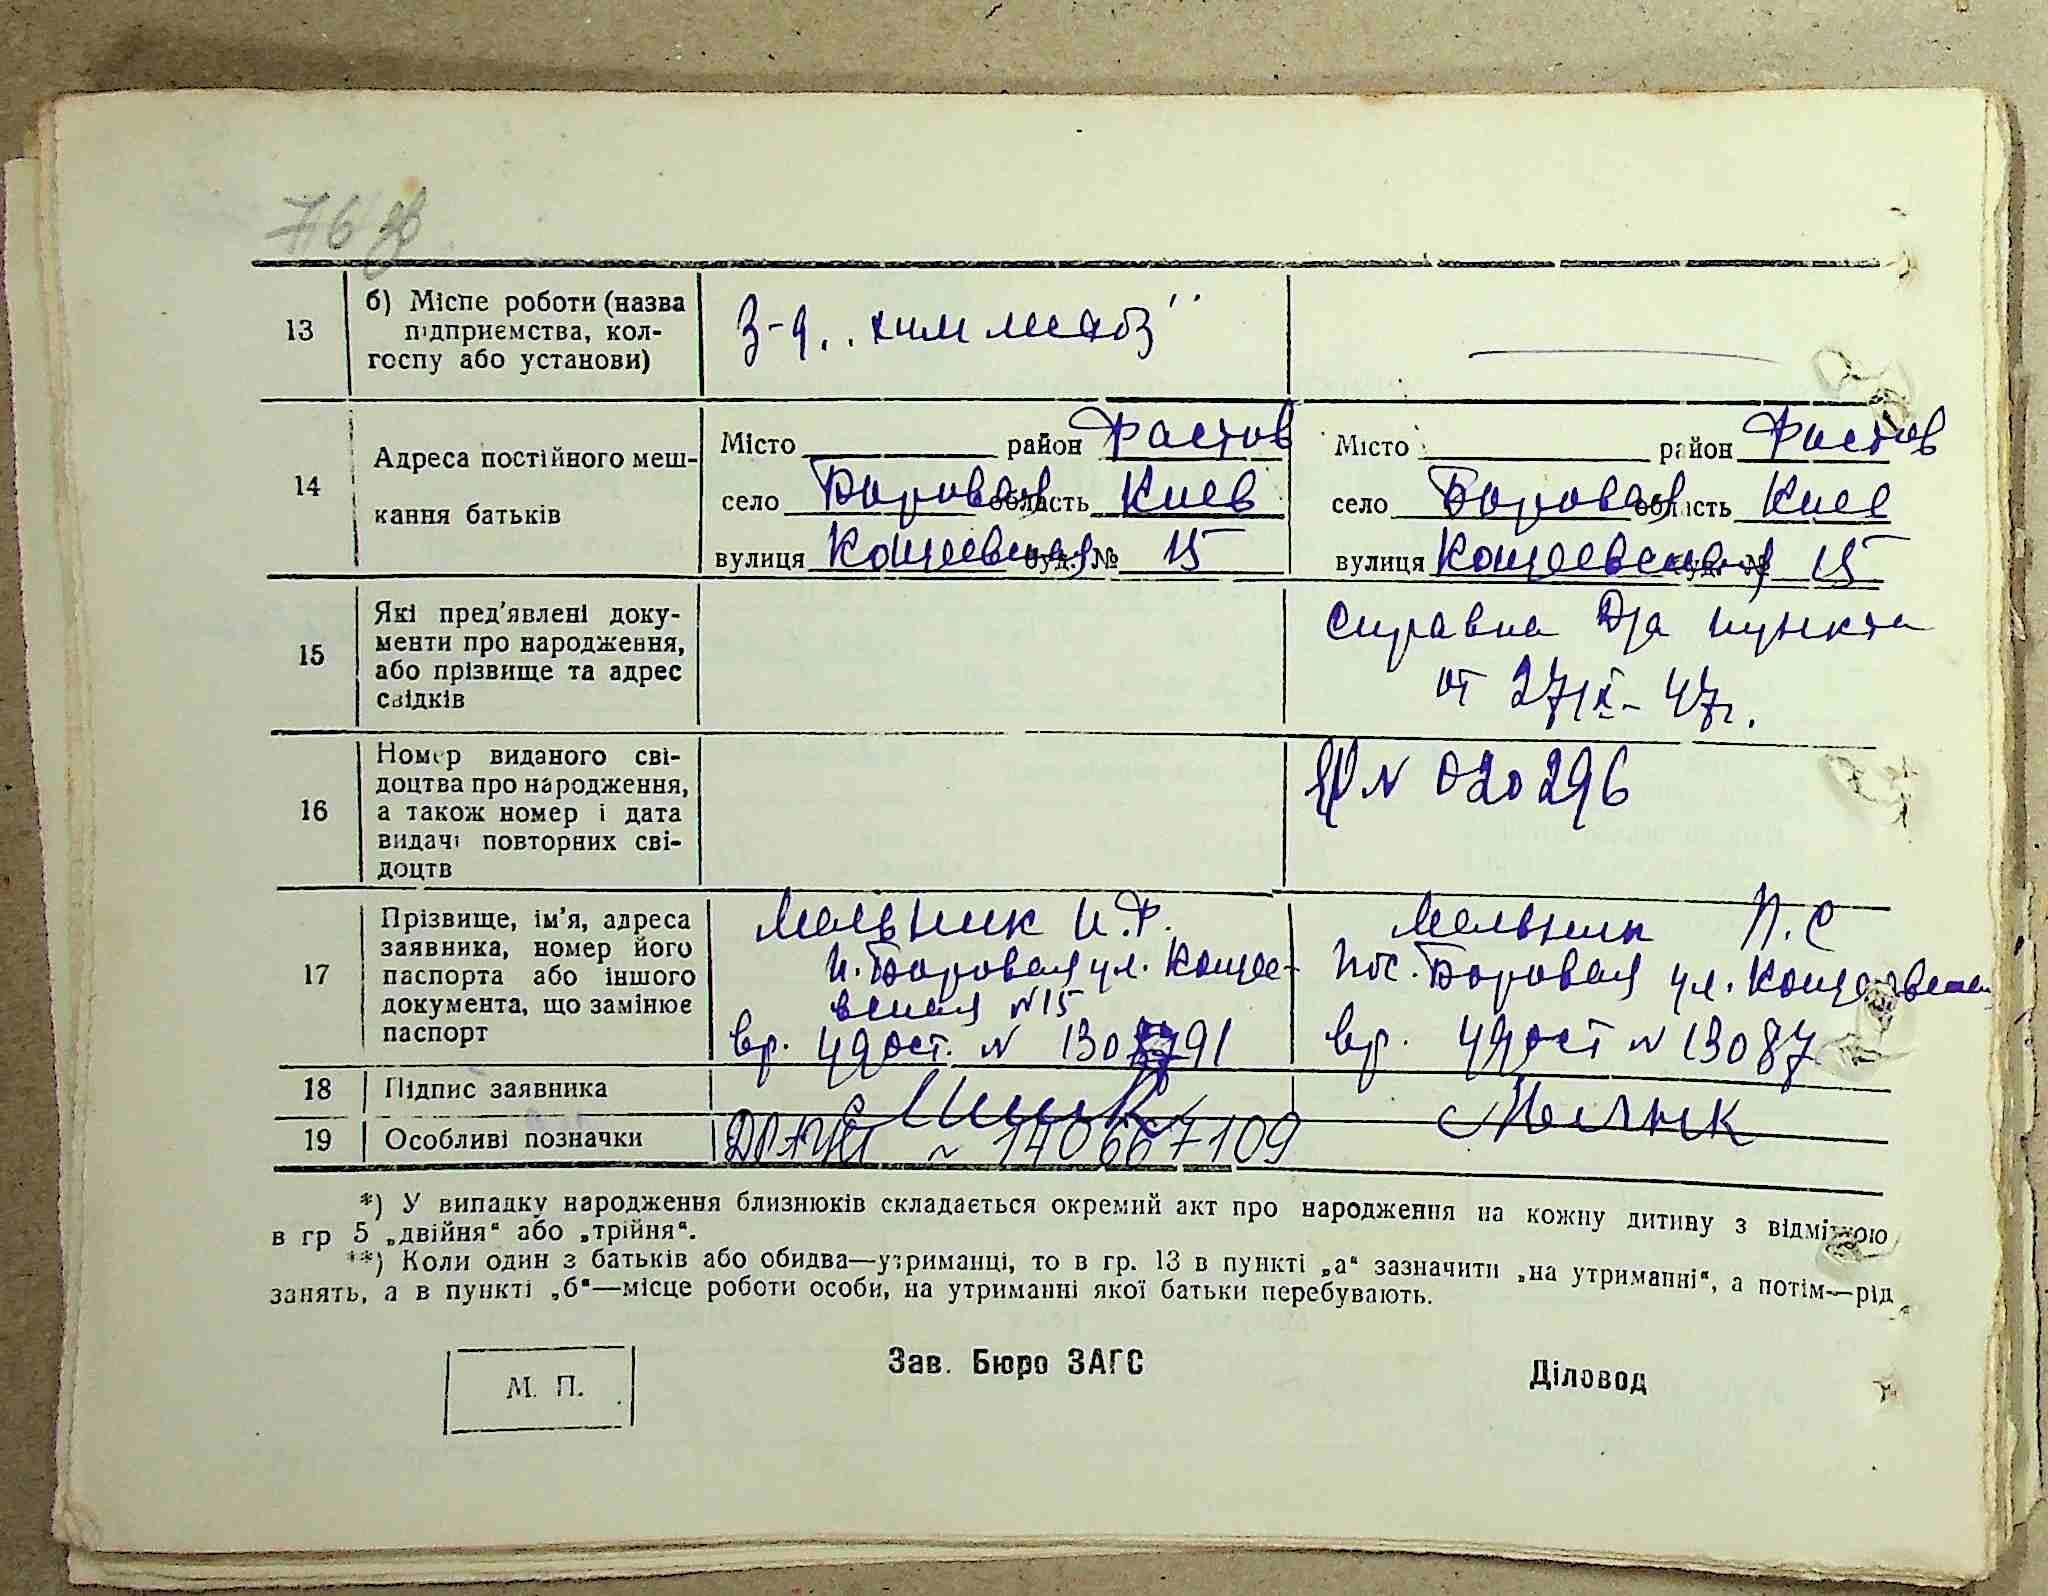 76 зв
13
б) Місце роботи (назва
підприємства, кол-
госпу або установи)
З-д „химмаш"
14
Адреса постійного меш-
кання батьків
Місто район Фастов
село Боровая область Киев
вулиця Кощеевская буд. № 15
Місто район Фастов
село Боровая область Киев
вулиця Кощеевская буд. № 15
15
Які пред'явлені доку-
менти про народження,
або прізвище та адрес
свідків
Справка пункта
от 27/IX-47г.
16
Номер виданого сві-
доцтва про народження,
а також номер і дата
видачі повторних сві-
доцтв
N 020296
17
Прізвище, ім'я, адреса
заявника, номер його
паспорта або іншого
документа, що замінює
паспорт
Мельник И.Ф.
п. Боровая ул. Кощее-
вская N 15
вр. удост. N 13091
Мельник П. С
пос. Боровая ул. Кощеевская
вр. удост N 13087
18
Підпис заявника
Мельник
19
Особливі позначки
ДРАЦС N 140667109
*) У випадку народження близнюків складається окремий акт про народження на кожну дитину з відміткою
в гр 5 „двійня“ або „трійня“.
**) Коли один з батьків або обидва—утриманці, то в гр. 13 в пункті „а“ зазначити „на утриманні“, а потім—рід
занять, а в пункті „б“—місце роботи особи, на утриманні якої батьки перебувають.
М. П.
Зав. Бюро ЗАГС
Діловод